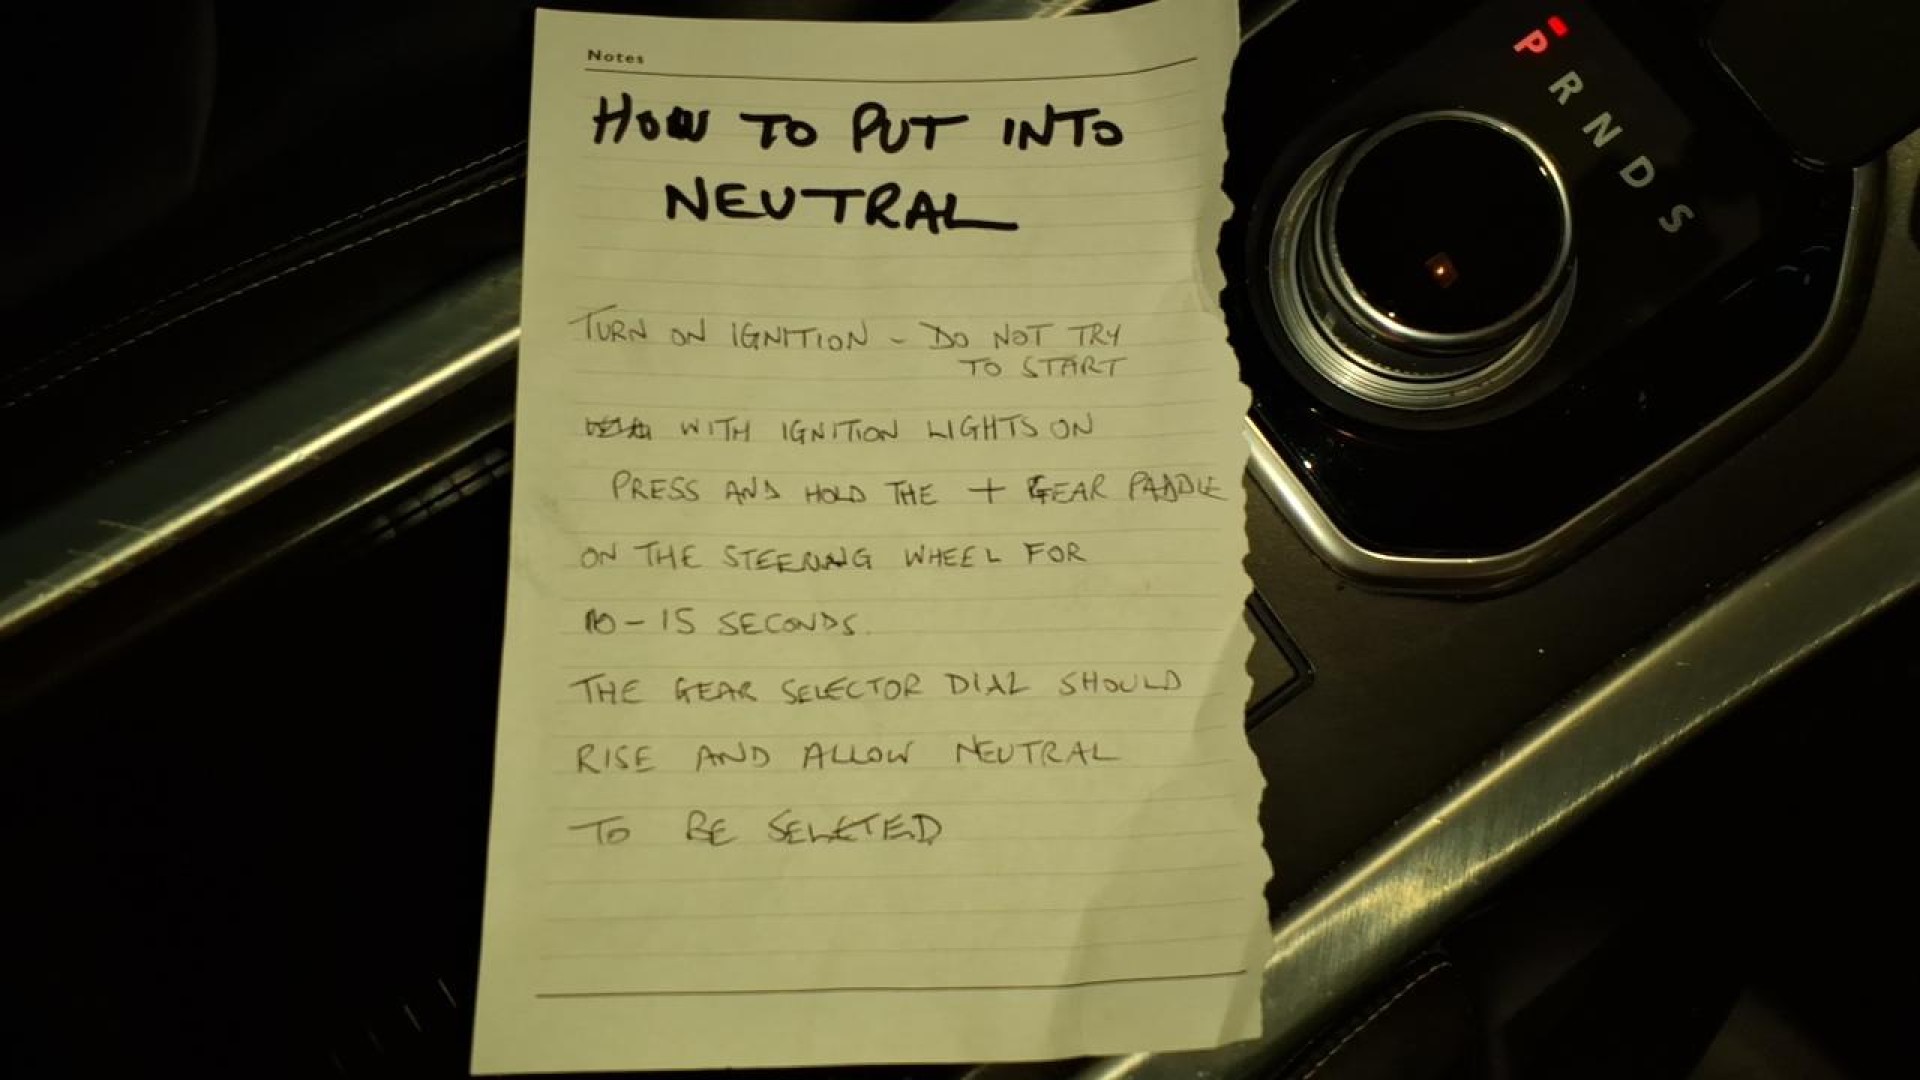 Notes
HOW TO PUT INTO
NEUTRAL
TURN ON IGNITION - DO NOT TRY
TO START
WITH IGNITION LIGHTS ON
PRESS AND HOLD THE + GEAR PADDLE
ON THE STEERING WHEEL FOR
10-15 SECONDS.
THE GEAR SELECTOR DIAL SHOULD
RISE AND ALLOW NEUTRAL
TO BE SELECTED
P
R
N
D
S